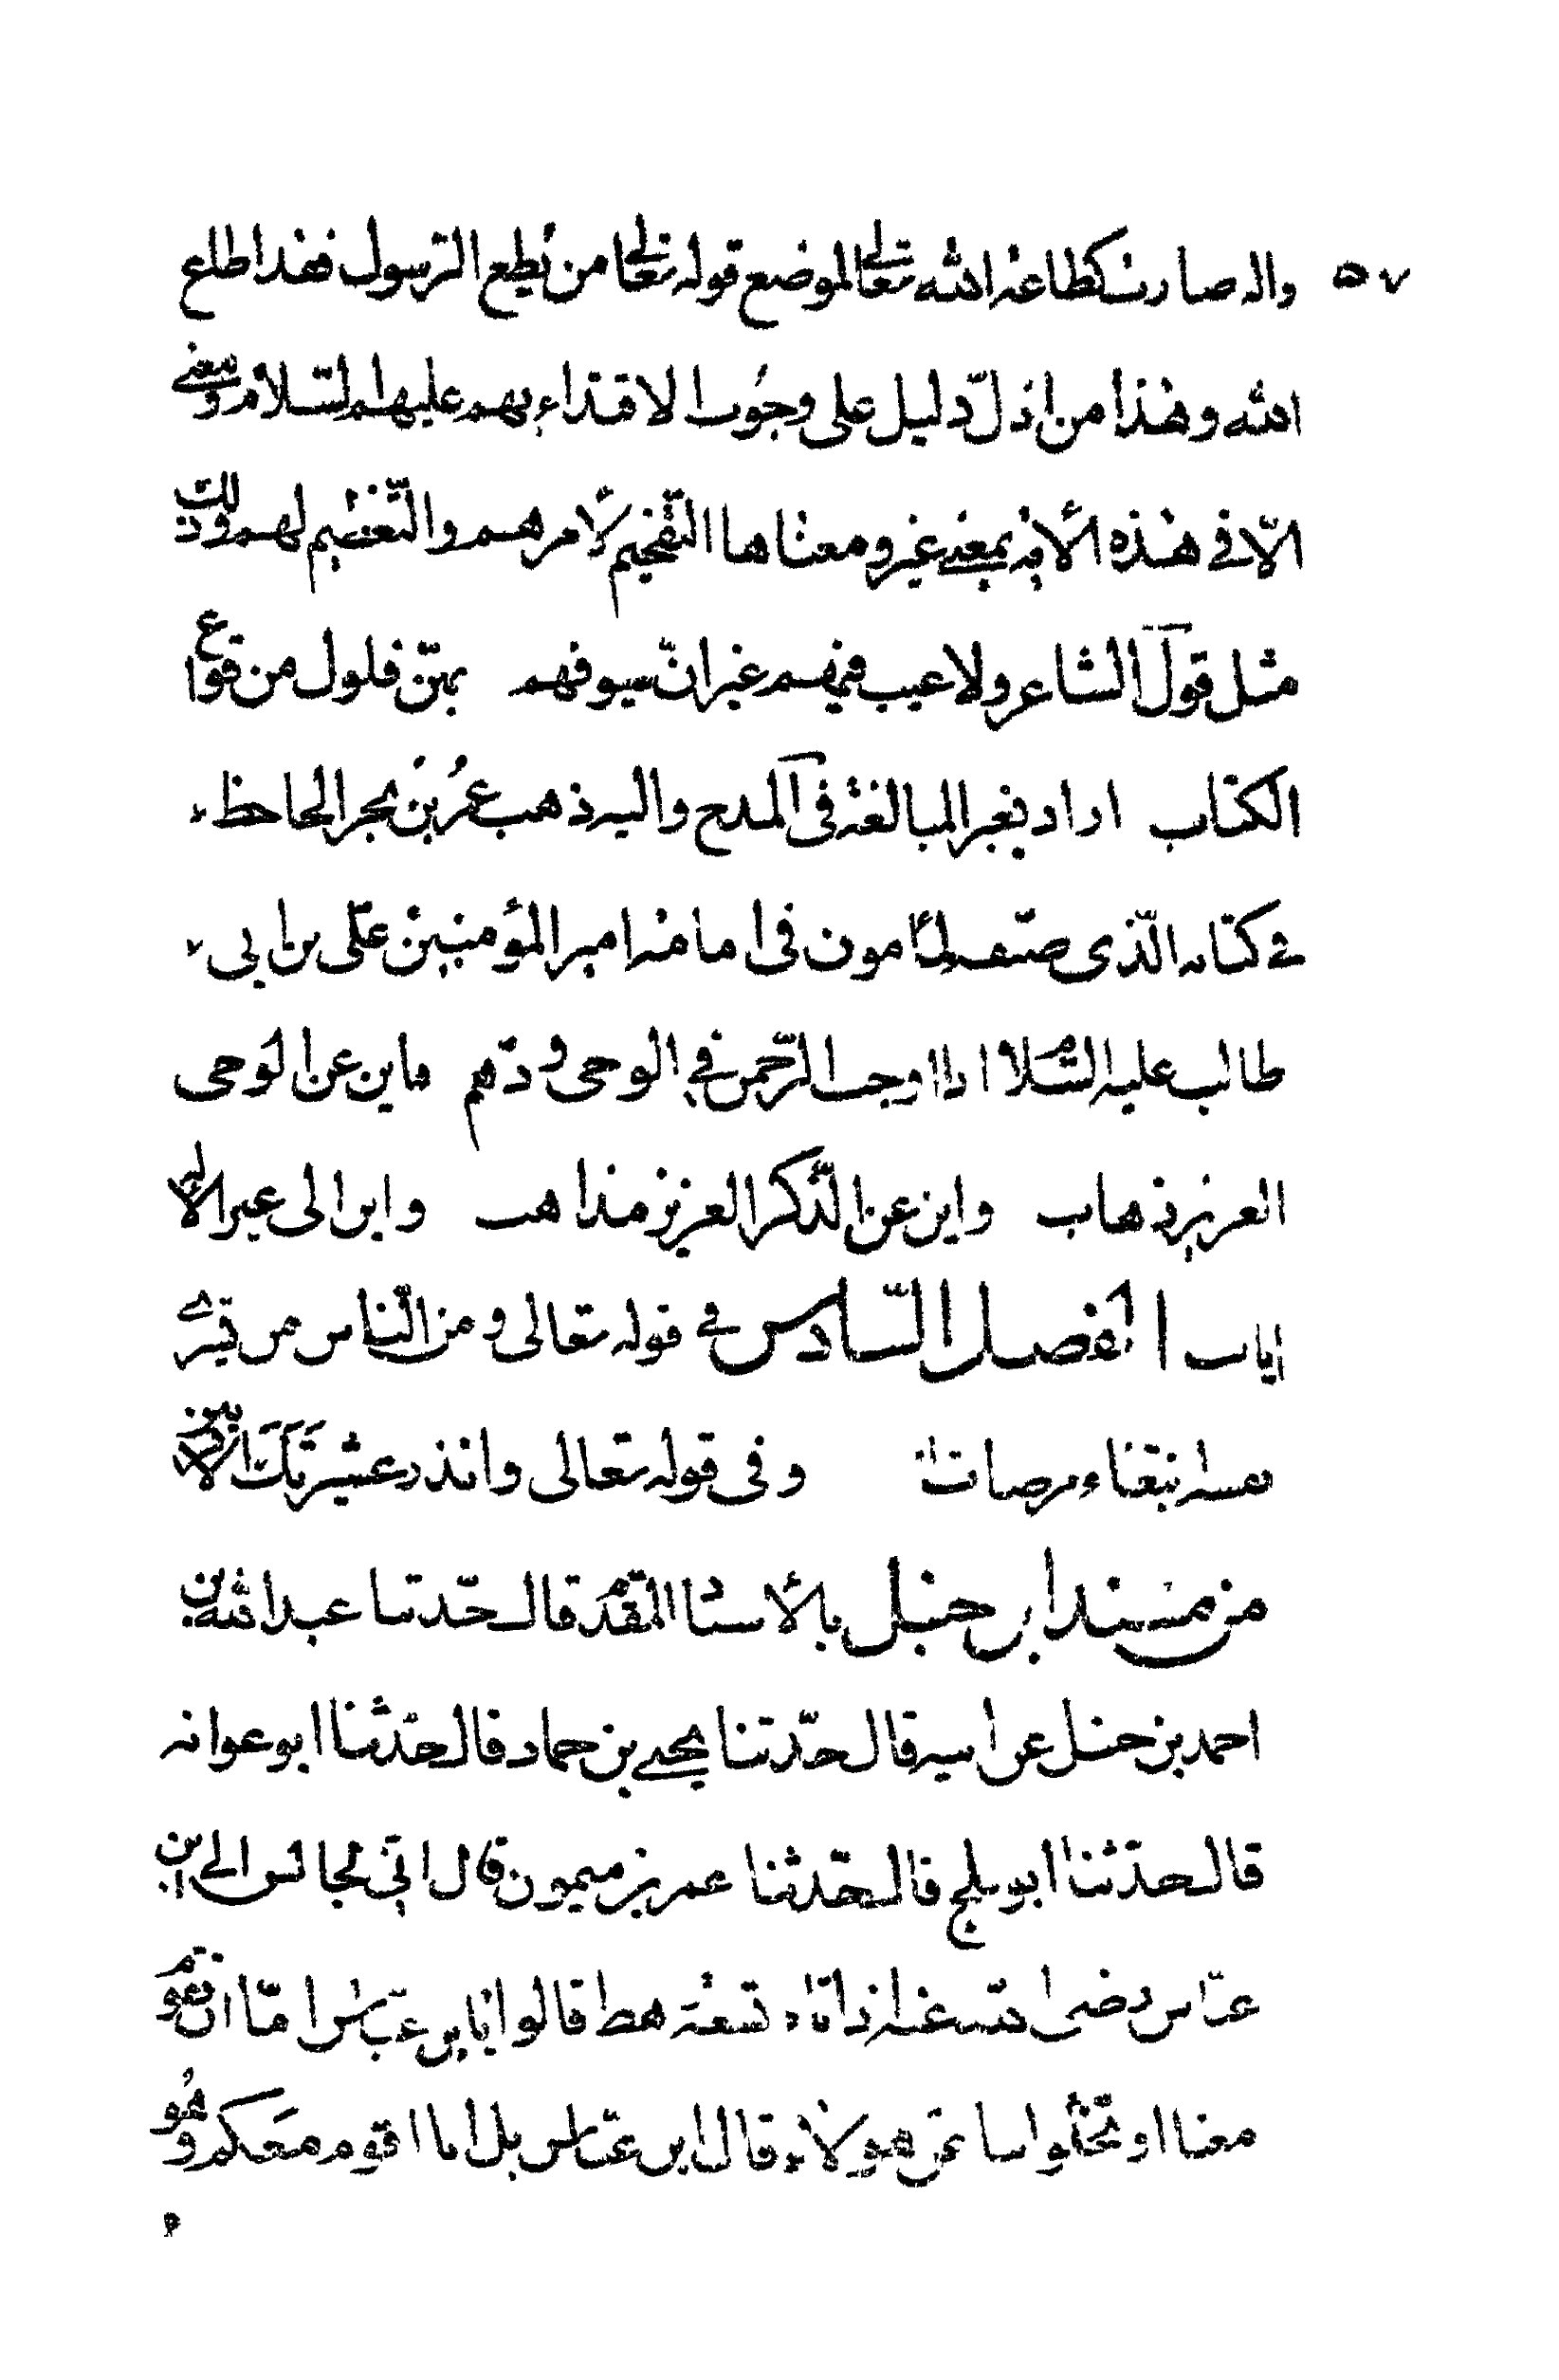 واله صارت كطاعة الله تعالى لموضع قوله تعالى من يُطِع الرّسول فقد اطاع
الله وهٰذا من ادلّ دليل على وجُوب الاقتداء بهم عليهم السّلام ومعنى
الّا في هٰذه الأية بمعنى غير ومعناها التّفخيم لأمرهم والتّعظيم لهم وذلك
مثل قول الشاعر ولا عيب فيهم غير انّ سيوفهم بهنّ فلول من قراع
الكتاب اراد بغير المبالغة في المدح واليه ذهب عمرُ بن بحر الجاحظ
في كتابه الّذى صنّفه للمأمون فى امامة امير المؤمنين علّى بن ابى
طالب عليه السّلام اذا اوجب الرّحمن في الوحى ودّهم فاين عن الوحى
العزيز ذهاب واين عن الذّكر العزيز مذاهب واين الى غير الاله
اياب الفصل السّادس في قوله تعالى ومن النّاس من يشرى
نفسه ابتغاء مرضات الله وفى قوله تعالى وانذر عشيرتَكَ الاقربين
من مسند ابن حنبل بالأسناد المقدّم قال حدّثنا عبد الله بن
احمد بن حنبل عن ابيه قال حدّثنا يحيى بن حماد قال حدّثنا ابو عوانه
قال حدّثنا ابو بلج قال حدّثنا عمر بن ميمون قال انّي لجالس الى ابن
عبّاس رضى الله عنه اذ اتاه تسعة رهط قالوا يابن عبّاس امّا ان تقوم
معنا او تخلّوا بنا عن هولاء قال ابن عبّاس بل انا اقوم معكم وهُو
٥٧